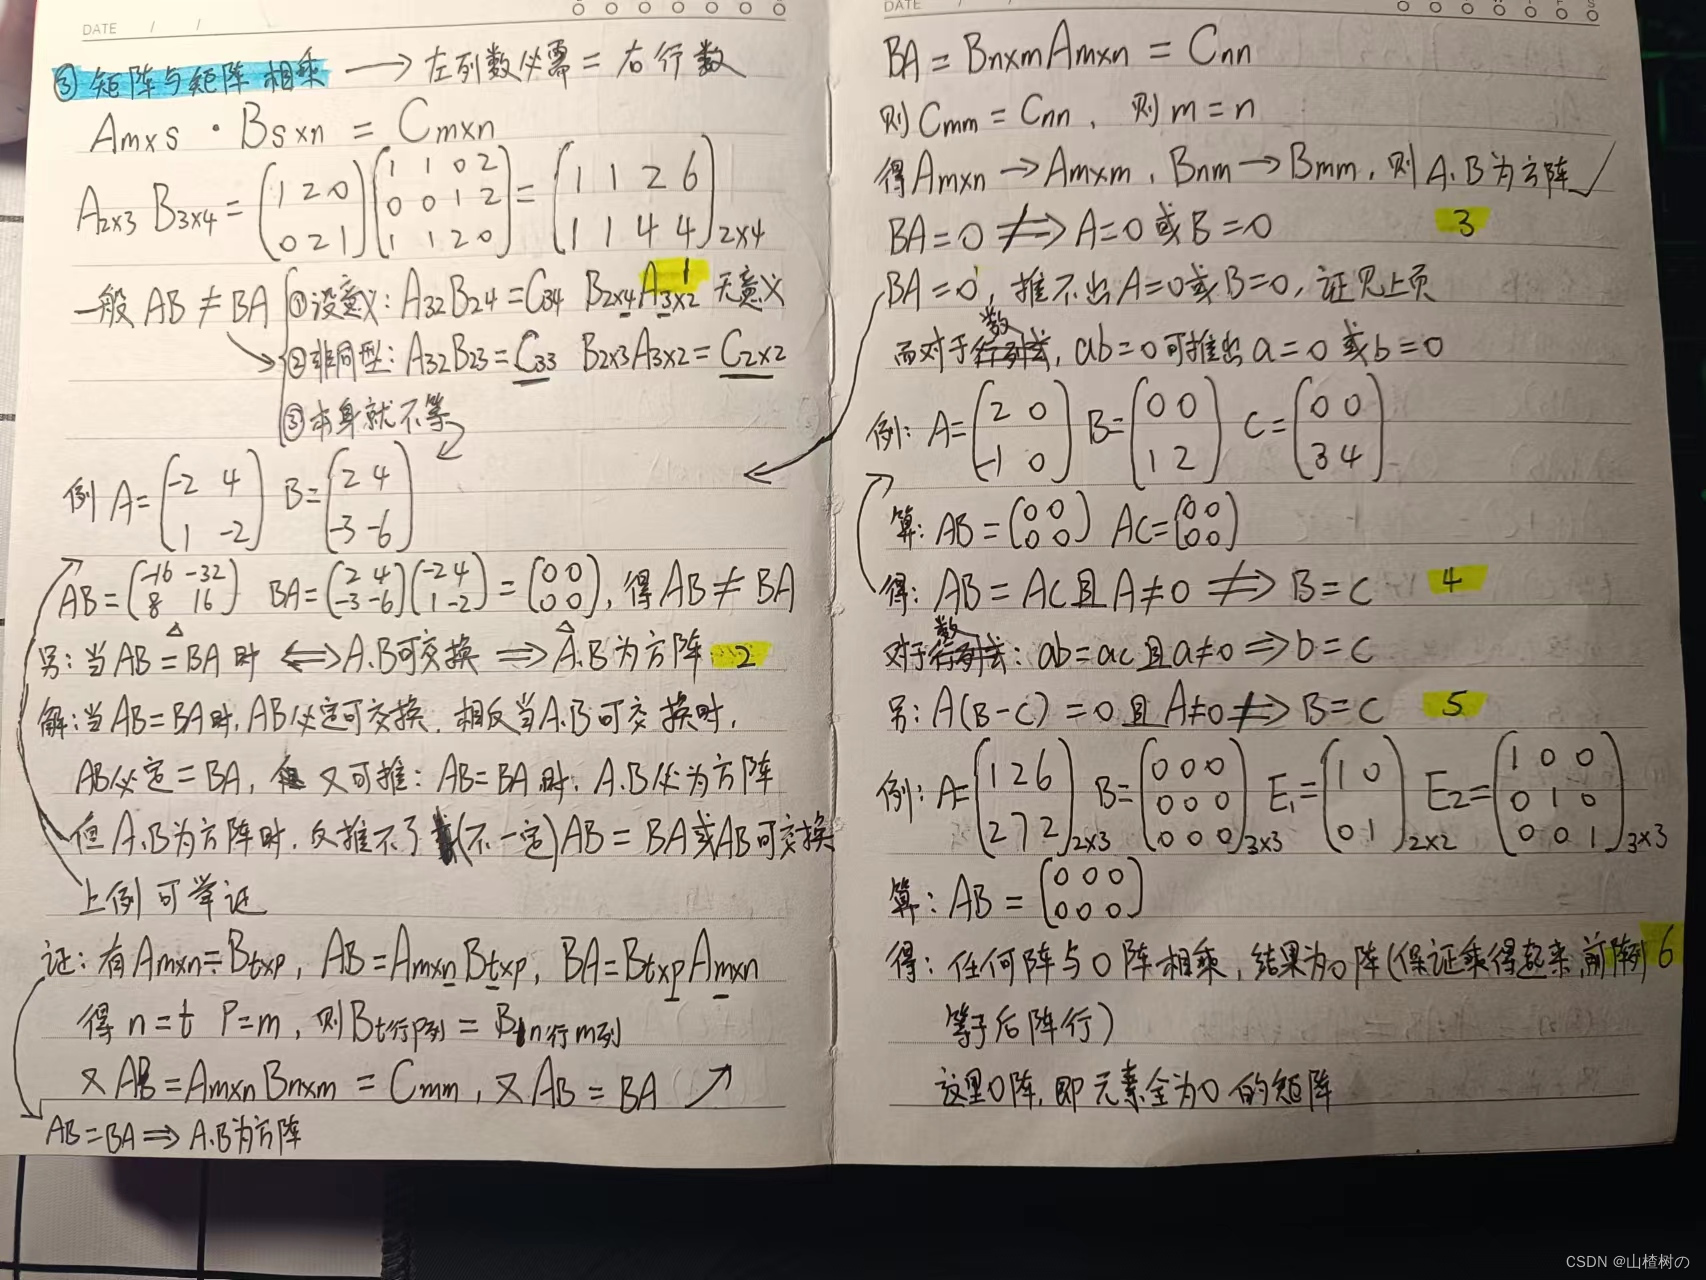 DATE / /
③ 矩阵与矩阵 相乘 → 左列数必需 = 右行数
Am×s · Bs×n = Cm×n
A2×3 B3×4 = (1 2 0 / 0 2 1) (1 1 0 2 / 0 0 1 2 / 1 1 2 0) = (1 1 2 6 / 1 1 4 4)2×4
一般 AB ≠ BA
1
①设意义: A32 B24 = C34 B2×4 A3×2 无意义
②非同型: A32 B23 = C33 B2×3 A3×2 = C2×2
③本身就不等
例 A = (-2 4 / 1 -2) B = (2 4 / -3 -6)
AB = (-16 -32 / 8 16) BA = (2 4 / -3 -6) (-2 4 / 1 -2) = (0 0 / 0 0), 得 AB ≠ BA
另: 当 AB = BA 时 ⟺ A.B可交换 ⟹ A.B为方阵 2
解: 当 AB = BA 时, AB必定可交换. 相反当A.B可交换时,
AB必定 = BA, 又可推: AB = BA 时. A.B必为方阵
但 A.B为方阵时. 反推不了 (不一定) AB = BA 或AB可交换
上例可举证
证: 有 Am×n = Bt×p, AB = Am×n Bt×p, BA = Bt×p Am×n
得 n = t P = m, 则 Bt行p列 = Bn行m列
又 AB = Am×n Bn×m = Cmm, 又 AB = BA ↗
AB = BA ⟹ A.B为方阵
DATE / /
BA = Bn×m Am×n = Cnn
则 Cmm = Cnn, 则 m = n
得 Am×n → Am×m, Bnm → Bmm, 则 A.B 为方阵 ✓
BA = 0 ⇏ A = 0 或 B = 0 3
BA = 0, 推不出 A = 0 或 B = 0, 证见上页
而对于数, ab = 0 可推出 a = 0 或 b = 0
例: A = (2 0 / -1 0) B = (0 0 / 1 2) C = (0 0 / 3 4)
算: AB = (0 0 / 0 0) AC = (0 0 / 0 0)
得: AB = AC 且 A ≠ 0 ⇏ B = C 4
对于数: ab = ac 且 a ≠ 0 ⟹ b = c
另: A(B-C) = 0 且 A ≠ 0 ⇏ B = C 5
例: A = (1 2 6 / 2 7 2)2×3 B = (0 0 0 / 0 0 0 / 0 0 0)3×3 E1 = (1 0 / 0 1)2×2 E2 = (1 0 0 / 0 1 0 / 0 0 1)3×3
算: AB = (0 0 0 / 0 0 0)
得: 任何阵与0阵相乘, 结果为0阵 (保证乘得起来, 前阵列 6
等于后阵行)
这里0阵, 即元素全为0的矩阵
CSDN @山楂树の